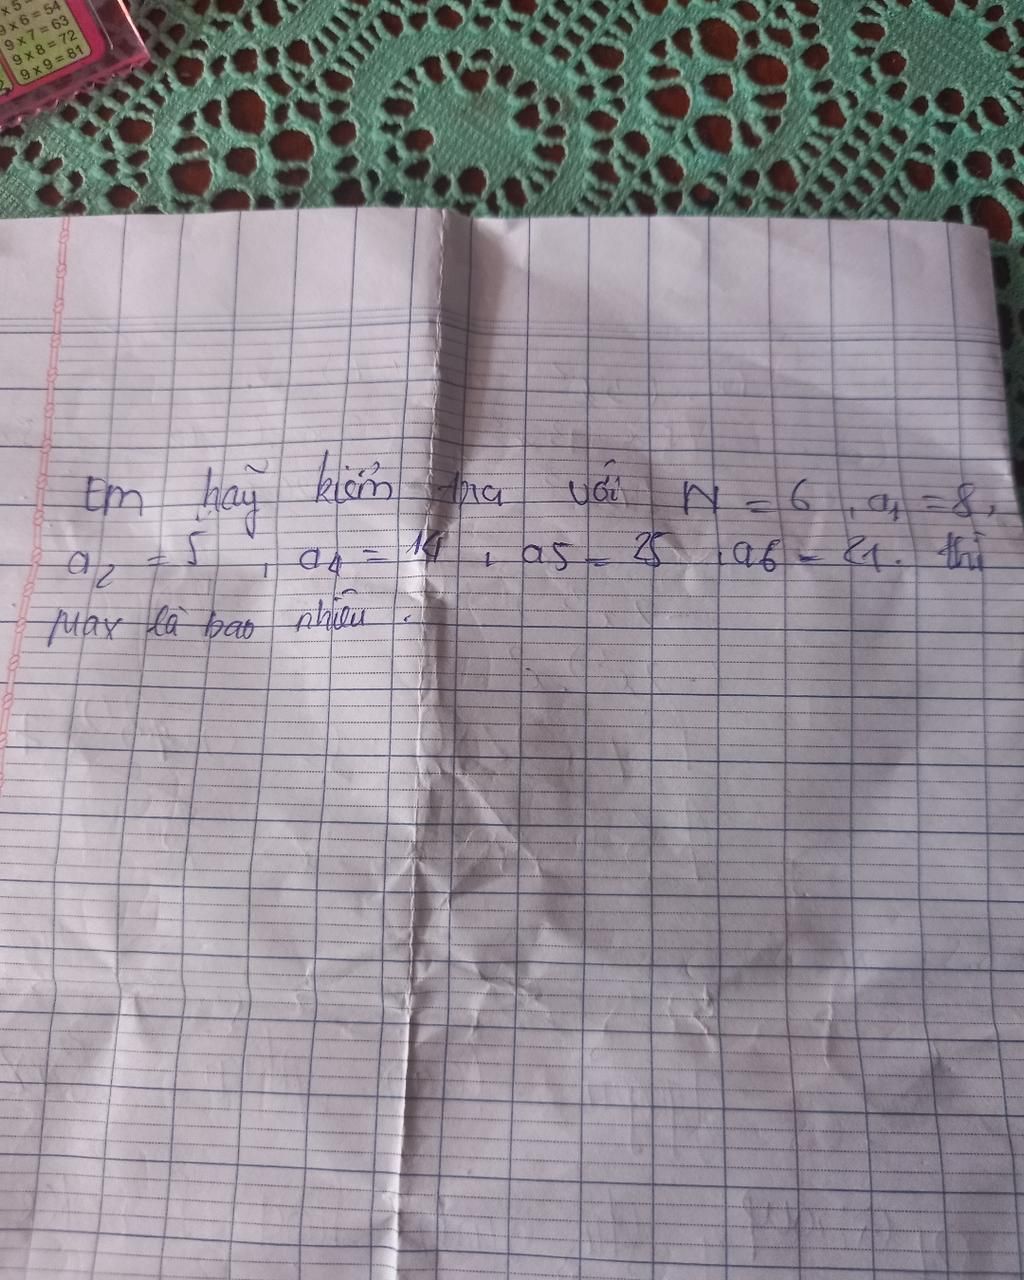 x 5
9 x 6 = 54
9 x 7 = 63
9 x 8 = 72
9 x 9 = 81
Em hãy kiểm tra với N = 6, a1 = 8,
a2 = 5, a4 = 14, a5 = 25, a6 = 21. thì
Max là bao nhiêu.